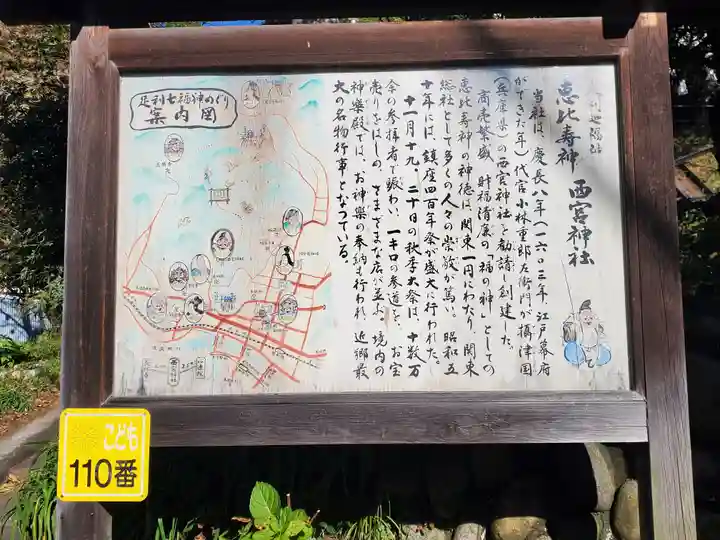 恵比寿神 西宮神社
当社は、慶長八年(一六〇三年、江戸幕府
ができた年)代官小林重郎左衛門が摂津国
(兵庫県)の西宮神社を勧請、創建した。
商売繁盛、財福清廉の「福の神」としての
恵比寿神の神徳は、関東一円にわたり、関東
総社として多くの人々の崇敬が篤い。昭和五
十年には、鎮座四百年祭が盛大に行われた。
十一月十九、二十日の秋季大祭は、十数万
余の参拝者で賑わい、一キロの参道を、お宝
売りをはじめ、さまざまな店が並ぶ。境内の
神樂殿では、お神樂の奉納も行われ、近郷最
大の名物行事となっている。
足利七福神めぐり
案内図
こども
110番